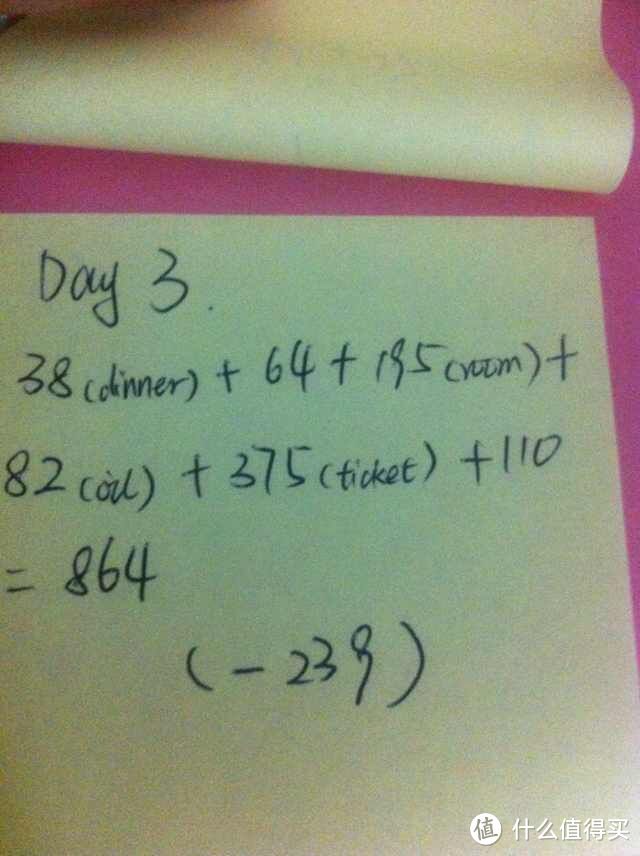 Day 3.
38 (dinner) + 64 + 195 (room) +
82 (oil) + 375 (ticket) + 110
= 864
(-239)
值 什么值得买